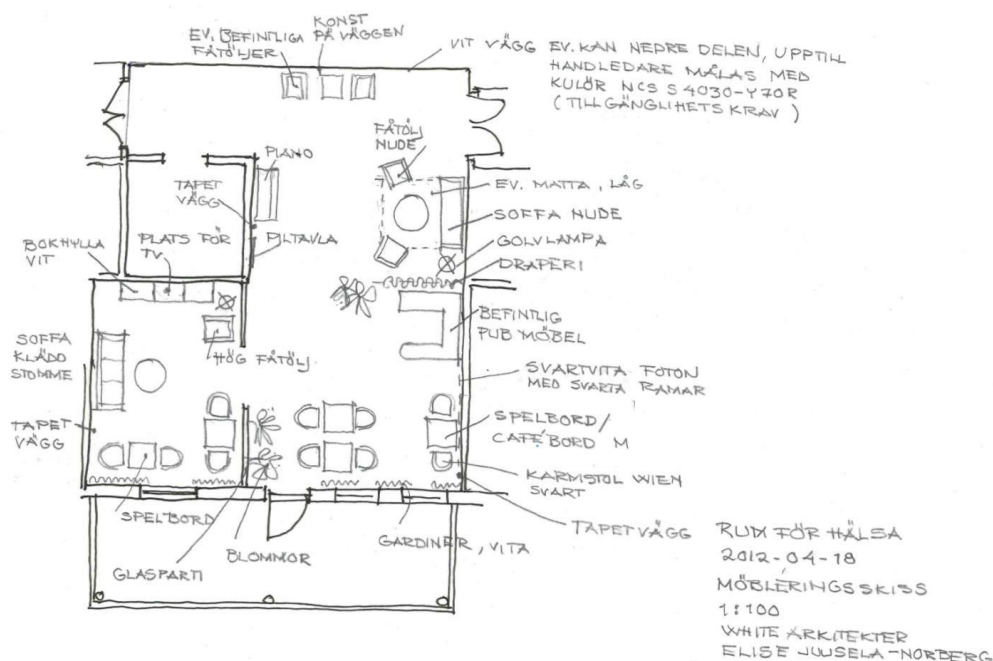 KONST
PÅ VÄGGEN
EV. BEFINTLIGA
FÅTÖLJER
VIT VÄGG EV. KAN NEDRE DELEN, UPPTILL
HANDLEDARE MÅLAS MED
KULÖR NCS S 4030-Y70R
(TILLGÄNGLIHETS KRAV)
FÅTÖLJ
NUDE
PIANO
TAPET
VÄGG
EV. MATTA, LÅG
SOFFA NUDE
GOLVLAMPA
DRAPERI
BOKHYLLA
VIT
PLATS FÖR
TV
PILTAVLA
BEFINTLIG
PUB MÖBEL
SOFFA
KLÄDD
STOMME
HÖG FÅTÖLJ
SVARTVITA FOTON
MED SVARTA RAMAR
TAPET
VÄGG
SPELBORD/
CAFÉBORD M
KARMSTOL WIEN
SVART
SPELBORD
GLASPARTI
BLOMMOR
GARDINER, VITA
TAPETVÄGG
RUM FÖR HÄLSA
2012-04-18
MÖBLERINGSSKISS
1:100
WHITE ARKITEKTER
ELISE JUUSELA-NORBERG